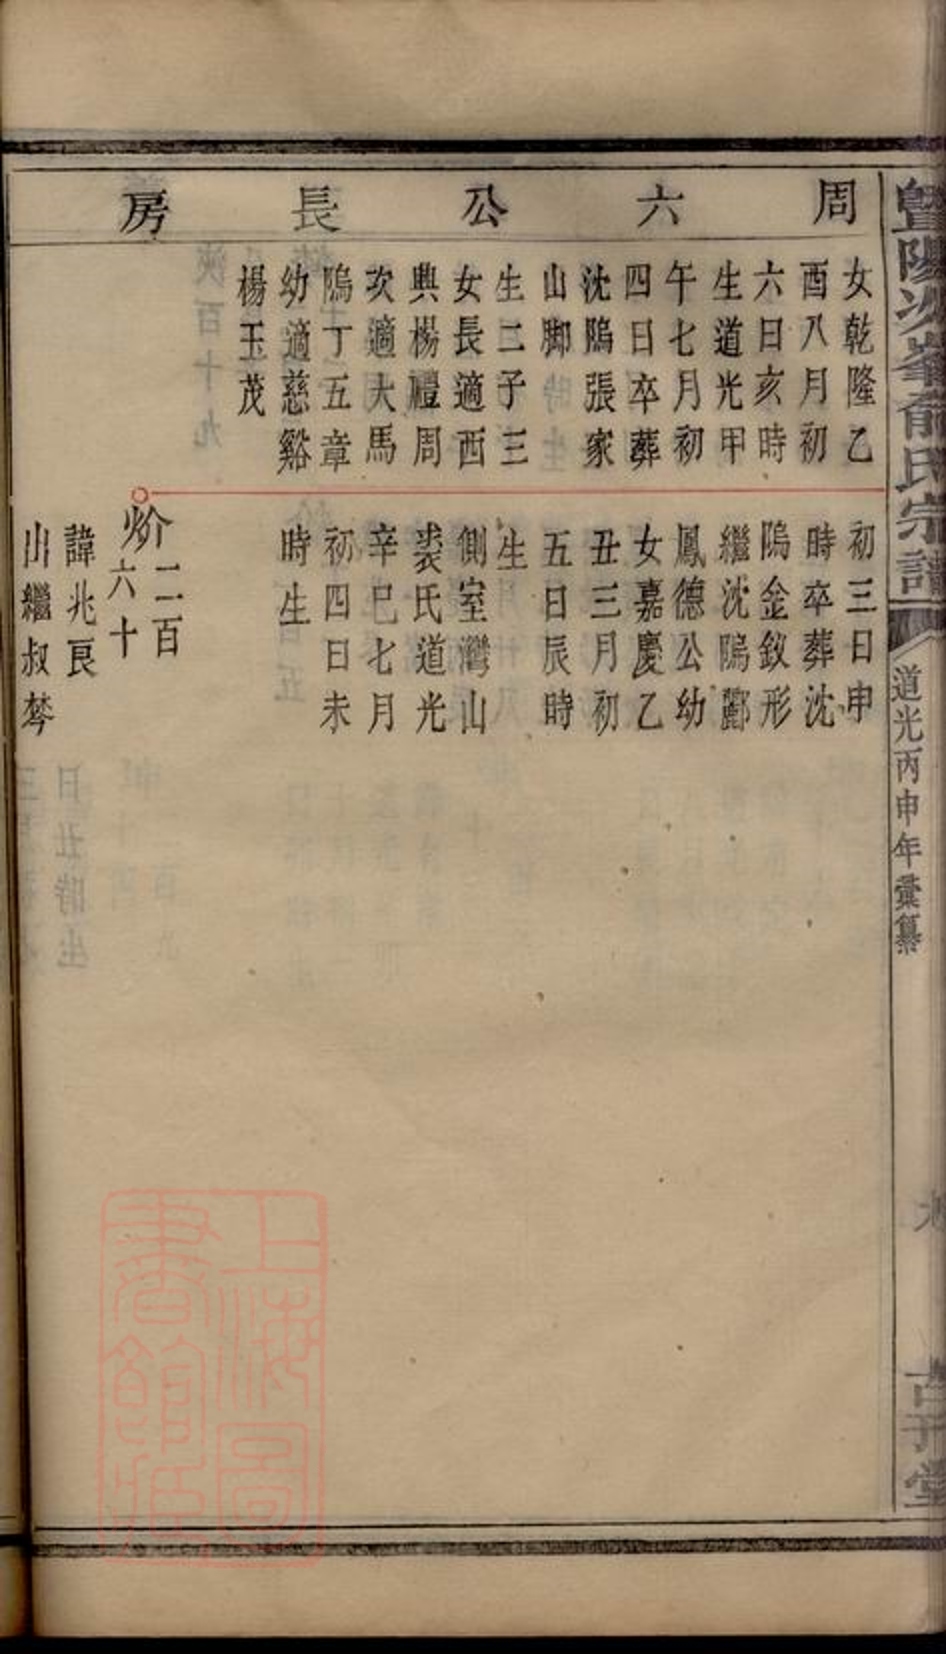 周六公長房
女乾隆乙
酉八月初
六日亥時
生道光甲
午七月初
四日卒葬
沈隖張家
山脚
生二子三
女長適西
興楊禮周
次適大馬
隖丁五章
幼適慈谿
楊玉茂
初三日申
時卒葬沈
隖金釵形
繼沈隖酈
鳳德公幼
女嘉慶乙
丑三月初
五日辰時
生
側室灣山
裘氏道光
辛巳七月
初四日未
時生
炌二百
六十
諱兆良
出繼叔棽
暨陽次峯俞氏宗譜
道光丙申年彙纂
堂
上海圖
書館藏